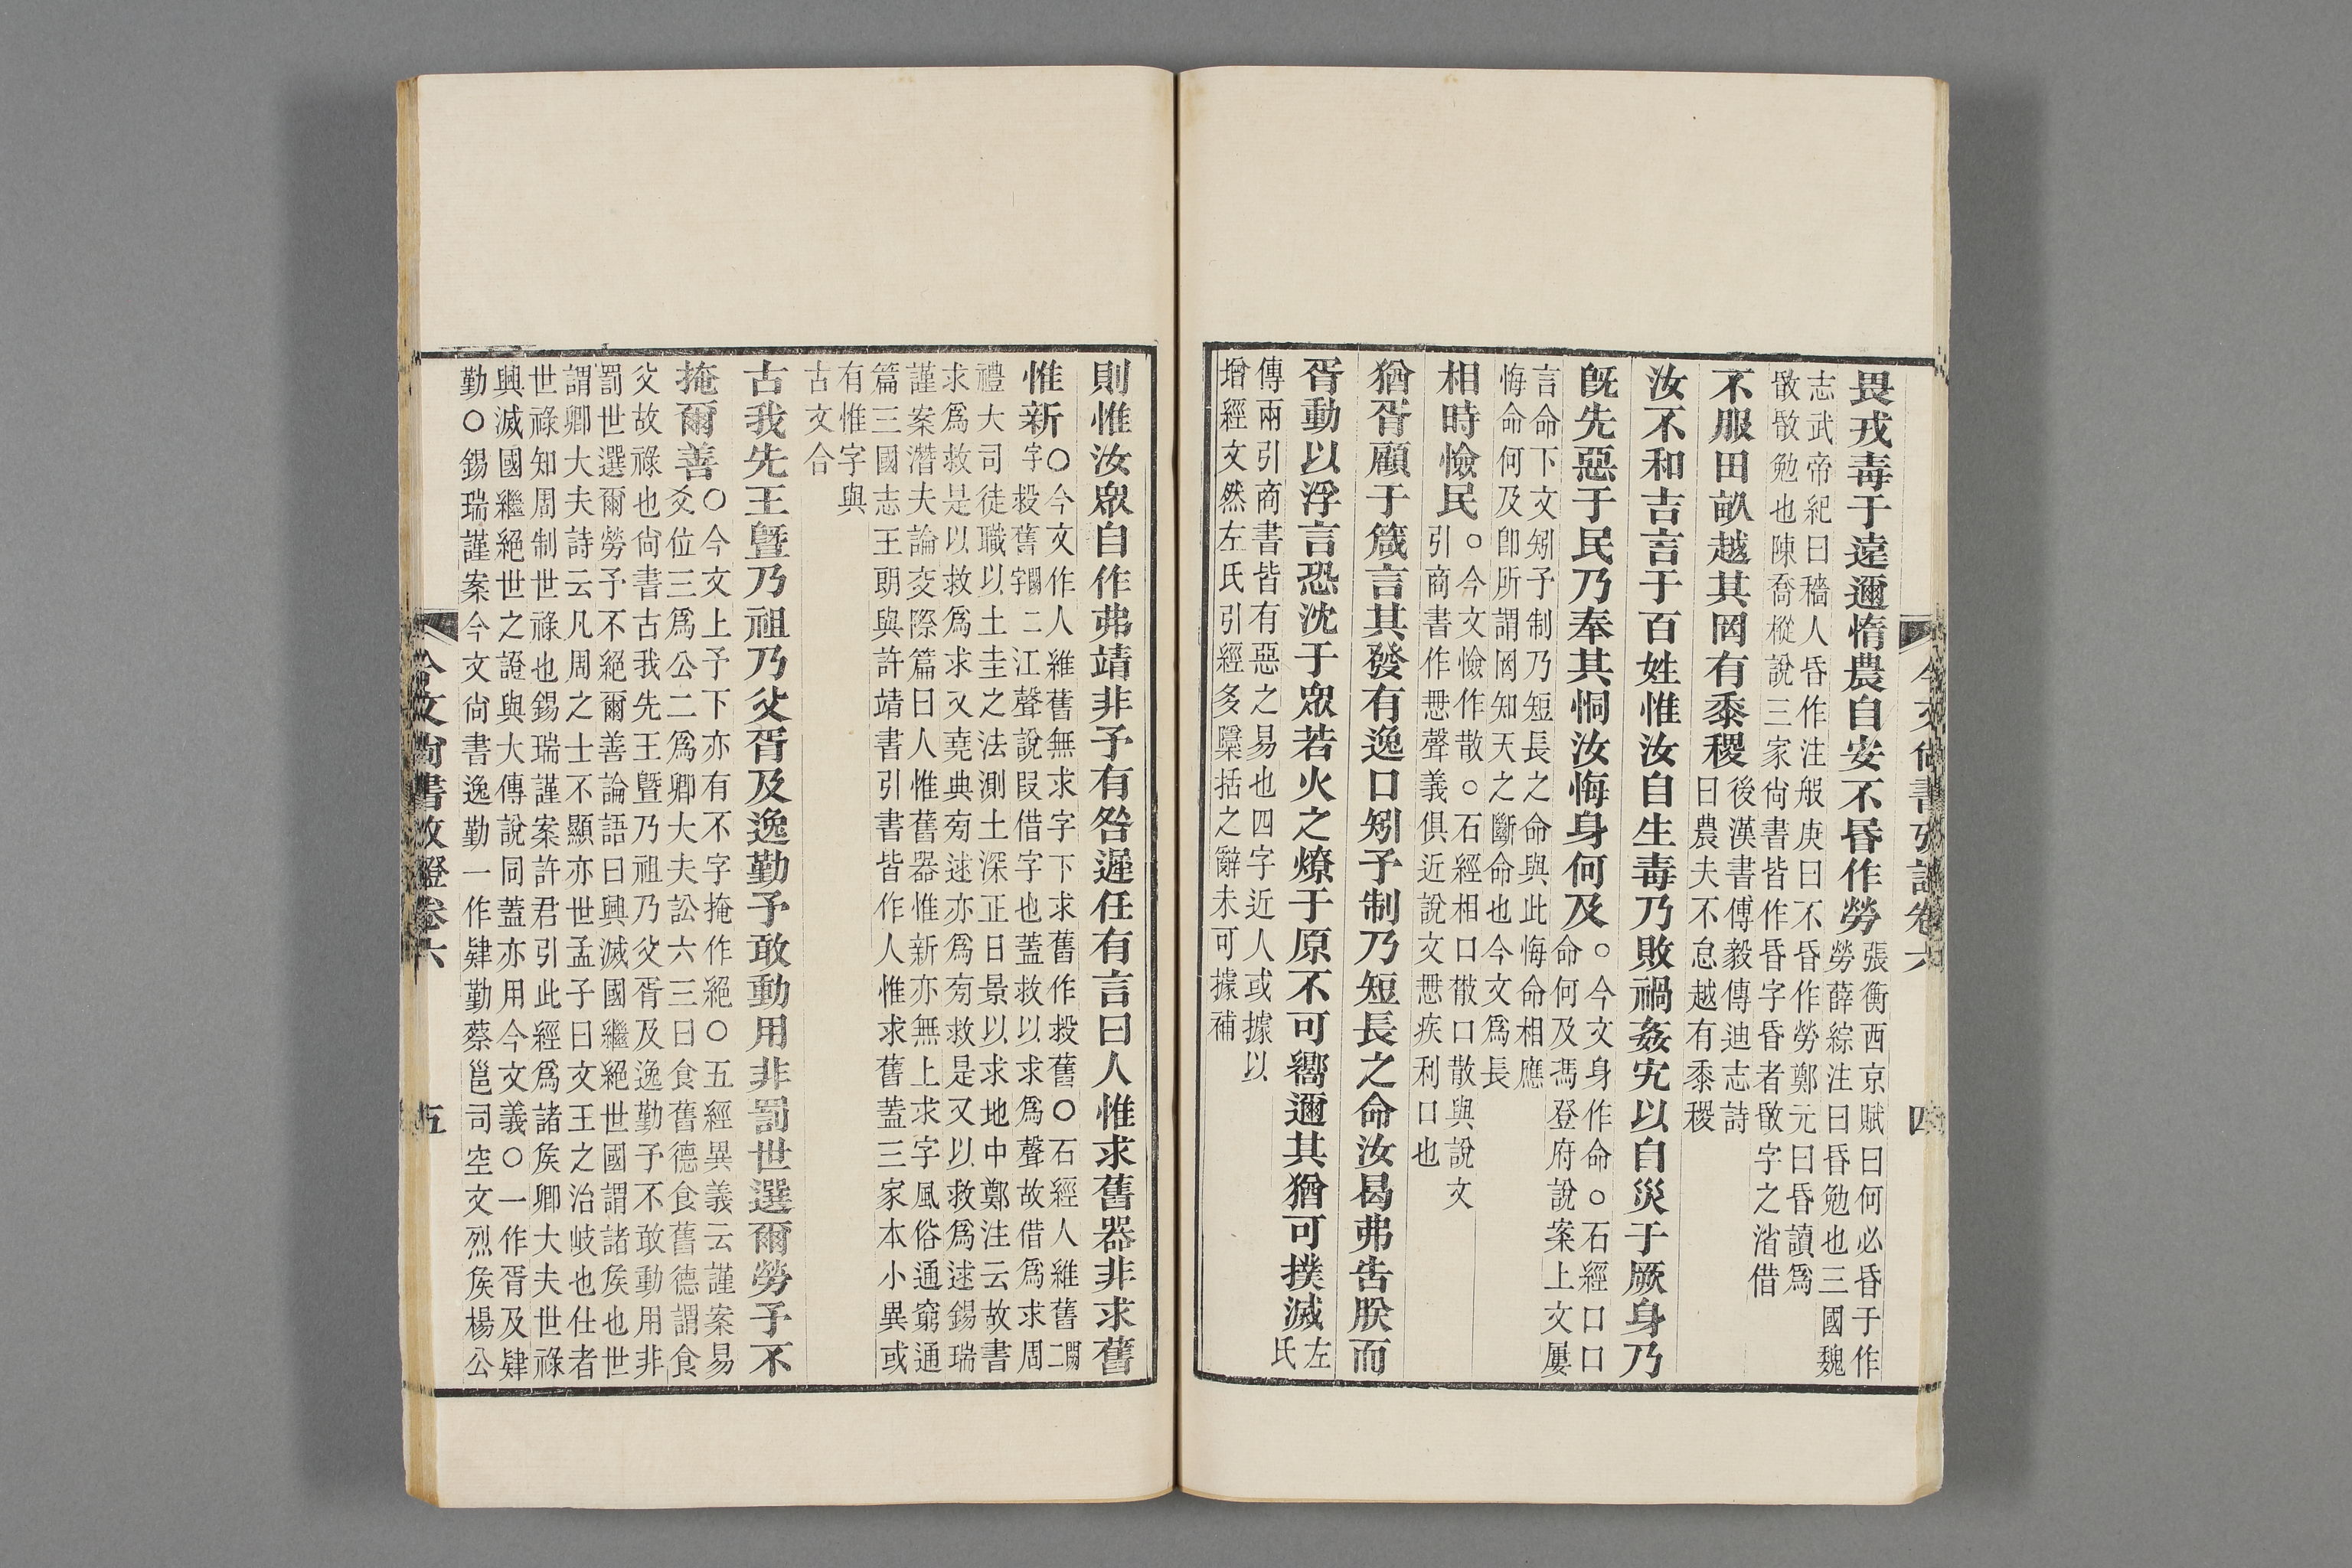 畏戎毒于遠邇惰農自安不昬作勞張衡西京賦曰何必昬于作
勞薛綜注曰昬勉也三國魏
志武帝紀曰穡人昬作注般庚曰不昬作勞鄭元曰昬讀爲
散敃勉也陳喬樅說三家尙書皆作昬字昬者敃字之渻借
不服田畝越其罔有黍稷後漢書傅毅傳迪志詩
曰農夫不怠越有黍稷
汝不和吉言于百姓惟汝自生毒乃敗禍姦宄以自災于厥身乃
旣先惡于民乃奉其恫汝悔身何及○今文身作命○石經口口
命何及馮登府說案上文屢
言命下文矧予制乃短長之命與此悔命相應
悔命何及卽所謂罔知天之斷命也今文爲長
相時憸民○今文憸作散○石經相口散口散與說文
引商書作㦥聲義俱近說文㦥疾利口也
猶胥顧于箴言其發有逸口矧予制乃短長之命汝曷弗告朕而
胥動以浮言恐沈于眾若火之燎于原不可嚮邇其猶可撲滅左
氏
傳兩引商書皆有惡之易也四字近人或據以
增經文然左氏引經多檃括之辭未可據補
今文尙書攷證卷六
四
則惟汝眾自作弗靖非予有咎遲任有言曰人惟求舊器非求舊
惟新○今文作人維舊無求字下求舊作殺舊○石經人維舊闕二
字殺舊闕字二江聲說叚借字也蓋救以求爲聲故借爲求周
禮大司徒職以土圭之法測土深正日景以求地中鄭注云故書
求爲救是以救爲求又堯典㫄逑亦爲㫄救是又以救爲逑錫瑞
謹案潛夫論交際篇曰人惟舊器惟新亦無上求字風俗通窮通
篇三國志王朗與許靖書引書皆作人惟求舊蓋三家本小異或
有惟字與
古文合
古我先王曁乃祖乃父胥及逸勤予敢動用非罰世選爾勞予不
掩爾善○今文上予下亦有不字掩作絕○五經異義云謹案易
爻位三爲公二爲卿大夫訟六三曰食舊德食舊德謂食
父故祿也尙書古我先王曁乃祖乃父胥及逸勤予不敢動用非
罰世選爾勞予不絕爾善論語曰興滅國繼絕世國謂諸矦也世
謂卿大夫詩云凡周之士不顯亦世孟子曰文王之治岐也仕者
世祿知周制世祿也錫瑞謹案許君引此經爲諸矦卿大夫世祿
興滅國繼絕世之證與大傳說同蓋亦用今文義○一作胥及肄
勤○錫瑞謹案今文尙書逸勤一作肄勤蔡邕司空文烈矦楊公
今文尙書攷證卷六
五